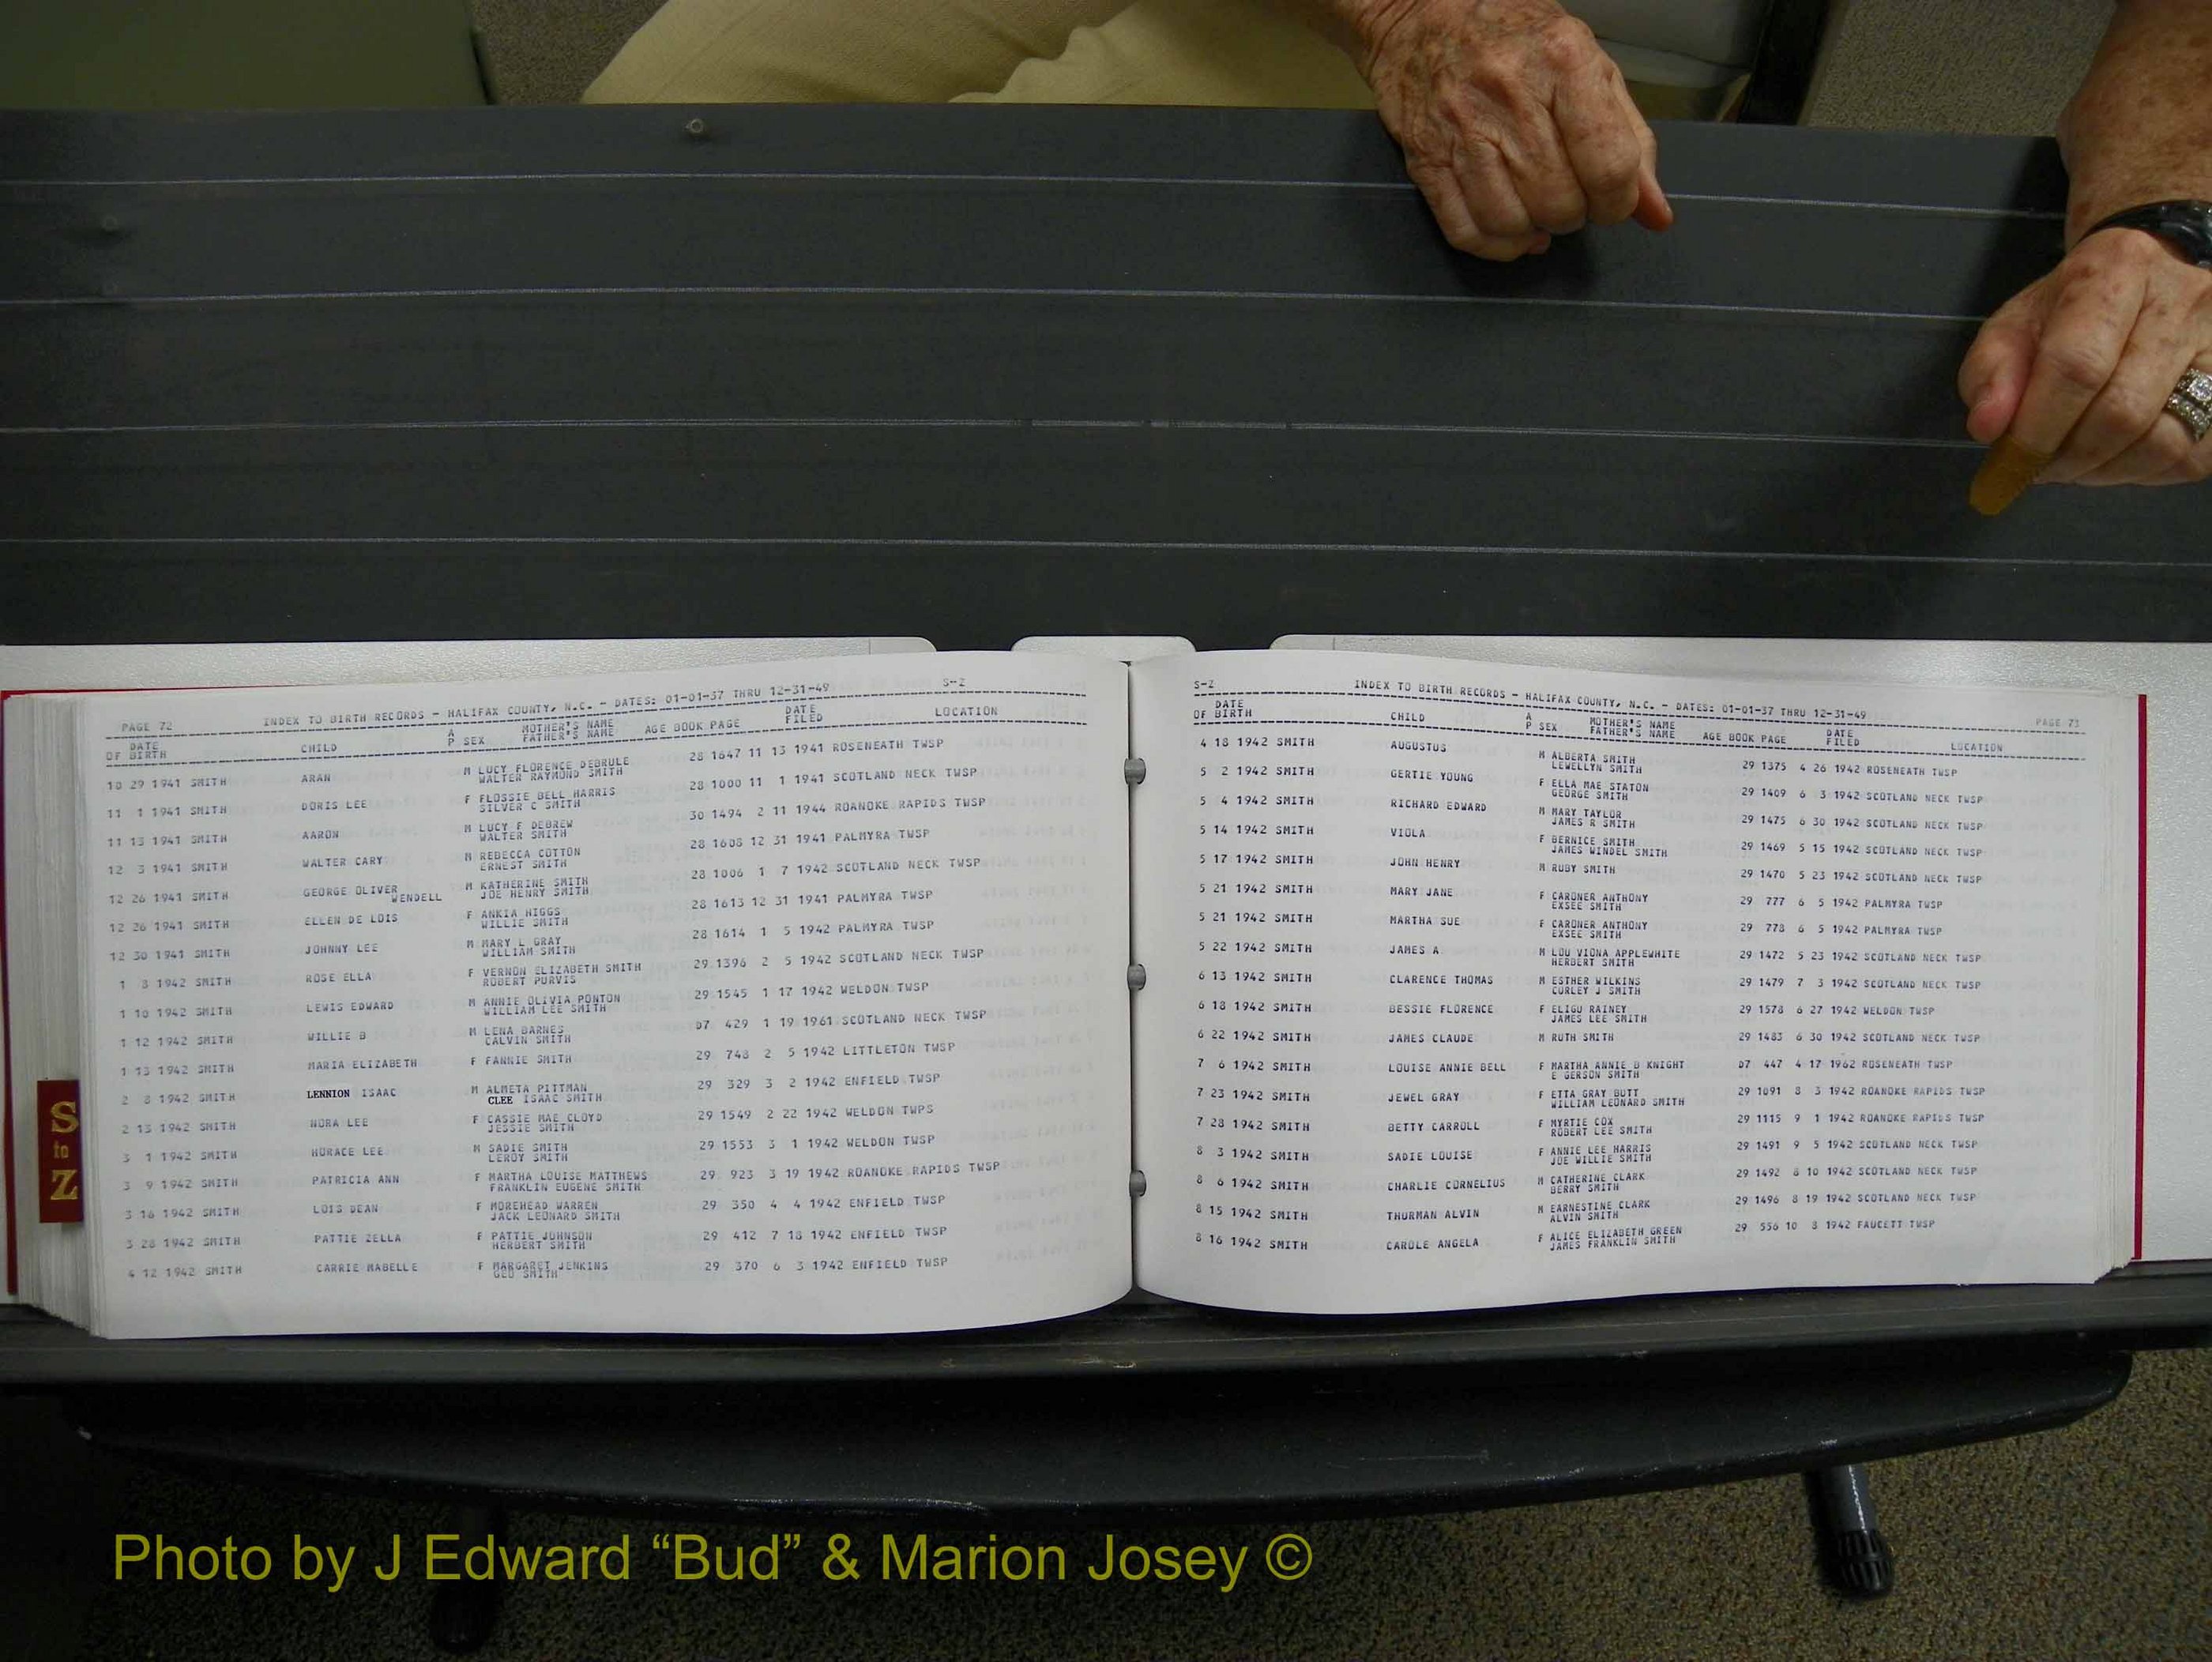 PAGE 72 INDEX TO BIRTH RECORDS - HALIFAX COUNTY, N.C. - DATES: 01-01-37 THRU 12-31-49 S-Z
DATE OF BIRTH CHILD AP SEX MOTHER'S NAME FATHER'S NAME AGE BOOK PAGE DATE FILED LOCATION
10 29 1941 SMITH ARAN M LUCY FLORENCE DEBRULE 28 1647 11 13 1941 ROSENEATH TWSP
WALTER RAYMOND SMITH
11 1 1941 SMITH DORIS LEE F FLOSSIE BELL HARRIS 28 1000 11 1 1941 SCOTLAND NECK TWSP
SILVER C SMITH
11 13 1941 SMITH AARON M LUCY F DEBREW 30 1494 2 11 1944 ROANOKE RAPIDS TWSP
WALTER SMITH
12 3 1941 SMITH WALTER CARY M REBECCA COTTON 28 1608 12 31 1941 PALMYRA TWSP
ERNEST SMITH
12 26 1941 SMITH GEORGE OLIVER M KATHERINE SMITH 28 1006 1 7 1942 SCOTLAND NECK TWSP
WENDELL JOE HENRY SMITH
12 26 1941 SMITH ELLEN DE LOIS F ANKIA HIGGS 28 1613 12 31 1941 PALMYRA TWSP
WILLIE SMITH
12 30 1941 SMITH JOHNNY LEE M MARY L GRAY 28 1614 1 5 1942 PALMYRA TWSP
WILLIAM SMITH
1 3 1942 SMITH ROSE ELLA F VERNON ELIZABETH SMITH 29 1396 2 5 1942 SCOTLAND NECK TWSP
ROBERT PURVIS
1 10 1942 SMITH LEWIS EDWARD M ANNIE OLIVIA PONTON 29 1545 1 17 1942 WELDON TWSP
WILLIAM LEE SMITH
1 12 1942 SMITH WILLIE B M LENA BARNES D7 429 1 19 1961 SCOTLAND NECK TWSP
CALVIN SMITH
1 13 1942 SMITH MARIA ELIZABETH F FANNIE SMITH 29 748 2 5 1942 LITTLETON TWSP
2 8 1942 SMITH LENNION ISAAC M ALMETA PITTMAN 29 329 3 2 1942 ENFIELD TWSP
CLEE ISAAC SMITH
2 13 1942 SMITH NORA LEE F CASSIE MAE CLOYD 29 1549 2 22 1942 WELDON TWPS
JESSIE SMITH
3 1 1942 SMITH HORACE LEE M SADIE SMITH 29 1553 3 1 1942 WELDON TWSP
LEROY SMITH
3 9 1942 SMITH PATRICIA ANN F MARTHA LOUISE MATTHEWS 29 923 3 19 1942 ROANOKE RAPIDS TWSP
FRANKLIN EUGENE SMITH
3 16 1942 SMITH LOIS DEAN F MOREHEAD WARREN 29 350 4 4 1942 ENFIELD TWSP
JACK LEONARD SMITH
3 28 1942 SMITH PATTIE ZELLA F PATTIE JOHNSON 29 412 7 18 1942 ENFIELD TWSP
HERBERT SMITH
4 12 1942 SMITH CARRIE MABELLE F MARGARET JENKINS 29 370 6 3 1942 ENFIELD TWSP
GEO SMITH
S-Z INDEX TO BIRTH RECORDS - HALIFAX COUNTY, N.C. - DATES: 01-01-37 THRU 12-31-49 PAGE 73
DATE OF BIRTH CHILD AP SEX MOTHER'S NAME FATHER'S NAME AGE BOOK PAGE DATE FILED LOCATION
4 18 1942 SMITH AUGUSTUS M ALBERTA SMITH 29 1375 4 26 1942 ROSENEATH TWSP
LEWELLYN SMITH
5 2 1942 SMITH GERTIE YOUNG F ELLA MAE STATON 29 1409 6 3 1942 SCOTLAND NECK TWSP
GEORGE SMITH
5 4 1942 SMITH RICHARD EDWARD M MARY TAYLOR 29 1475 6 30 1942 SCOTLAND NECK TWSP
JAMES R SMITH
5 14 1942 SMITH VIOLA F BERNICE SMITH 29 1469 5 15 1942 SCOTLAND NECK TWSP
JAMES WINDEL SMITH
5 17 1942 SMITH JOHN HENRY M RUBY SMITH 29 1470 5 23 1942 SCOTLAND NECK TWSP
5 21 1942 SMITH MARY JANE F CARDNER ANTHONY 29 777 6 5 1942 PALMYRA TWSP
EXSEE SMITH
5 21 1942 SMITH MARTHA SUE F CARDNER ANTHONY 29 778 6 5 1942 PALMYRA TWSP
EXSEE SMITH
5 22 1942 SMITH JAMES A. M LOU VIONA APPLEWHITE 29 1472 5 23 1942 SCOTLAND NECK TWSP
HERBERT SMITH
6 13 1942 SMITH CLARENCE THOMAS M ESTHER WILKINS 29 1479 7 3 1942 SCOTLAND NECK TWSP
CURLEY J SMITH
6 18 1942 SMITH BESSIE FLORENCE F ELIGU RAINEY 29 1578 6 27 1942 WELDON TWSP
JAMES LEE SMITH
6 22 1942 SMITH JAMES CLAUDE M RUTH SMITH 29 1483 6 30 1942 SCOTLAND NECK TWSP
7 6 1942 SMITH LOUISE ANNIE BELL F MARTHA ANNIE B KNIGHT D7 447 4 17 1962 ROSENEATH TWSP
E GERSON SMITH
7 23 1942 SMITH JEWEL GRAY F ETTA GRAY BUTT 29 1091 8 3 1942 ROANOKE RAPIDS TWSP
WILLIAM LEONARD SMITH
7 28 1942 SMITH BETTY CARROLL F MYRTIE COX 29 1115 9 1 1942 ROANOKE RAPIDS TWSP
ROBERT LEE SMITH
8 3 1942 SMITH SADIE LOUISE F ANNIE LEE HARRIS 29 1491 9 5 1942 SCOTLAND NECK TWSP
JOE WILLIE SMITH
8 6 1942 SMITH CHARLIE CORNELIUS M CATHERINE CLARK 29 1492 8 10 1942 SCOTLAND NECK TWSP
BERRY SMITH
8 15 1942 SMITH THURMAN ALVIN M EARNESTINE CLARK 29 1496 8 19 1942 SCOTLAND NECK TWSP
ALVIN SMITH
8 16 1942 SMITH CAROLE ANGELA F ALICE ELIZABETH GREEN 29 556 10 8 1942 FAUCETT TWSP
JAMES FRANKLIN SMITH
S
to
Z
Photo by J Edward “Bud” & Marion Josey ©